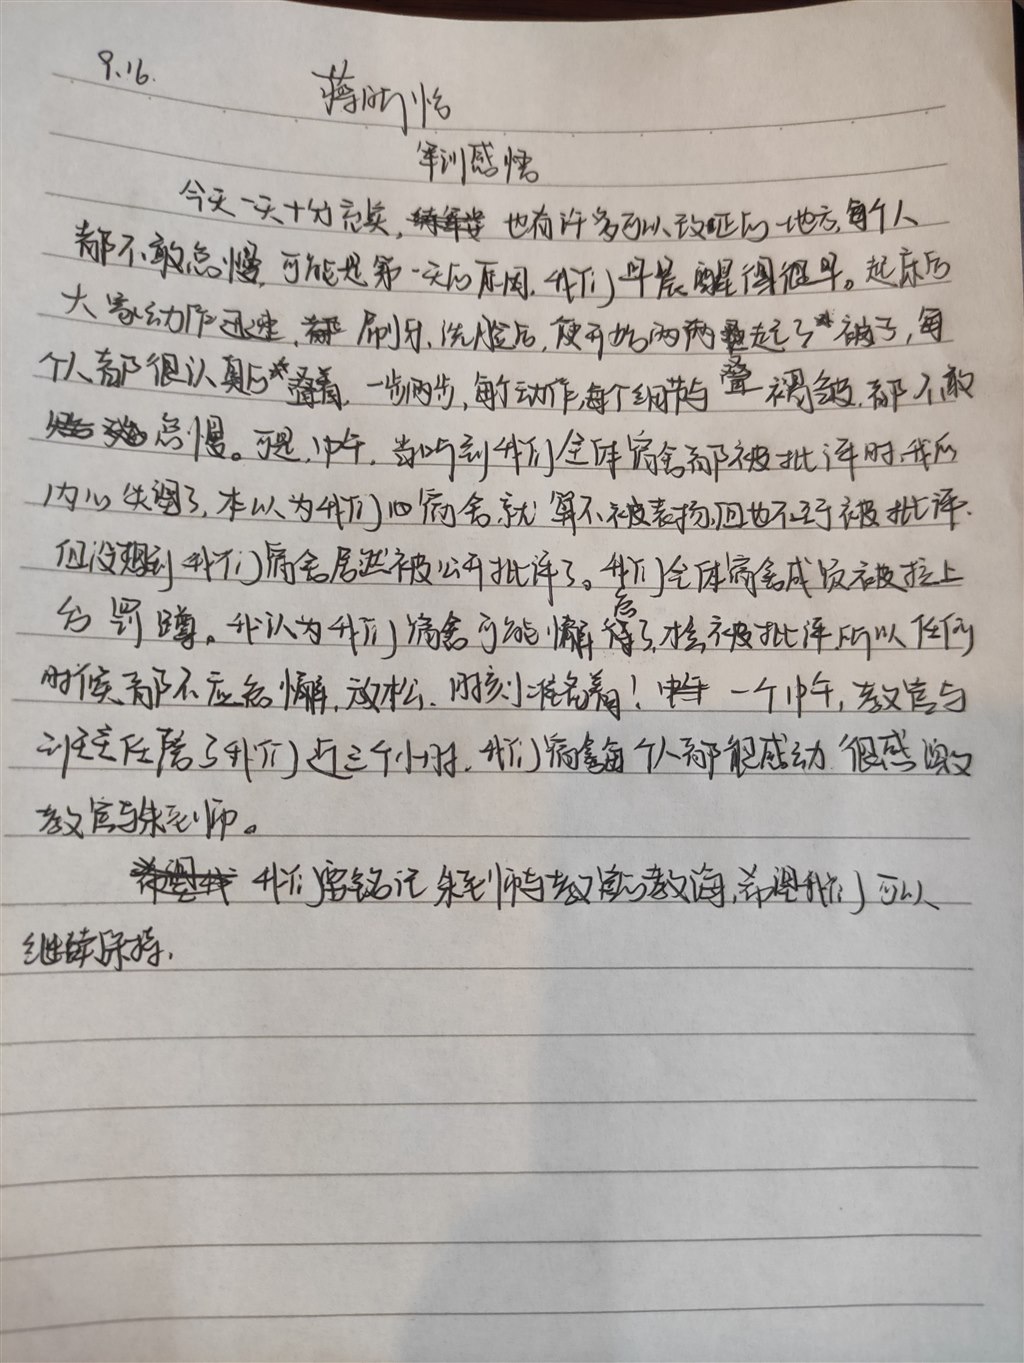 9.16.
蒋昕怡
军训感悟
今天一天十分充实,也有许多可以改正的地方,每个人
都不敢怠慢,可能是第一天的原因,我们早晨醒得很早。起床后
大家动作迅速,刷牙、洗脸后,便开始两两叠起了被子,每
个人都很认真的叠着,一步两步,每个动作,每个细节与褶皱,都不敢
怠慢。可是,中午,当听到我们全体宿舍都被批评时,我的
内心失望了,本以为我们的宿舍就算不被表扬,但也不至于被批评.
但没想到我们宿舍居然被公开批评了。我们全体宿舍成员被拉上
台罚蹲。我认为我们宿舍可能懈怠了,才会被批评,所以任何
时候都不应怠懈,放松,时刻准备着!一个中午,教官与
班主任陪了我们近三个小时,我们宿舍每个人都很感动,很感激
教官与朱老师。
我们要铭记朱老师与教官的教诲,希望我们可以
继续保持.